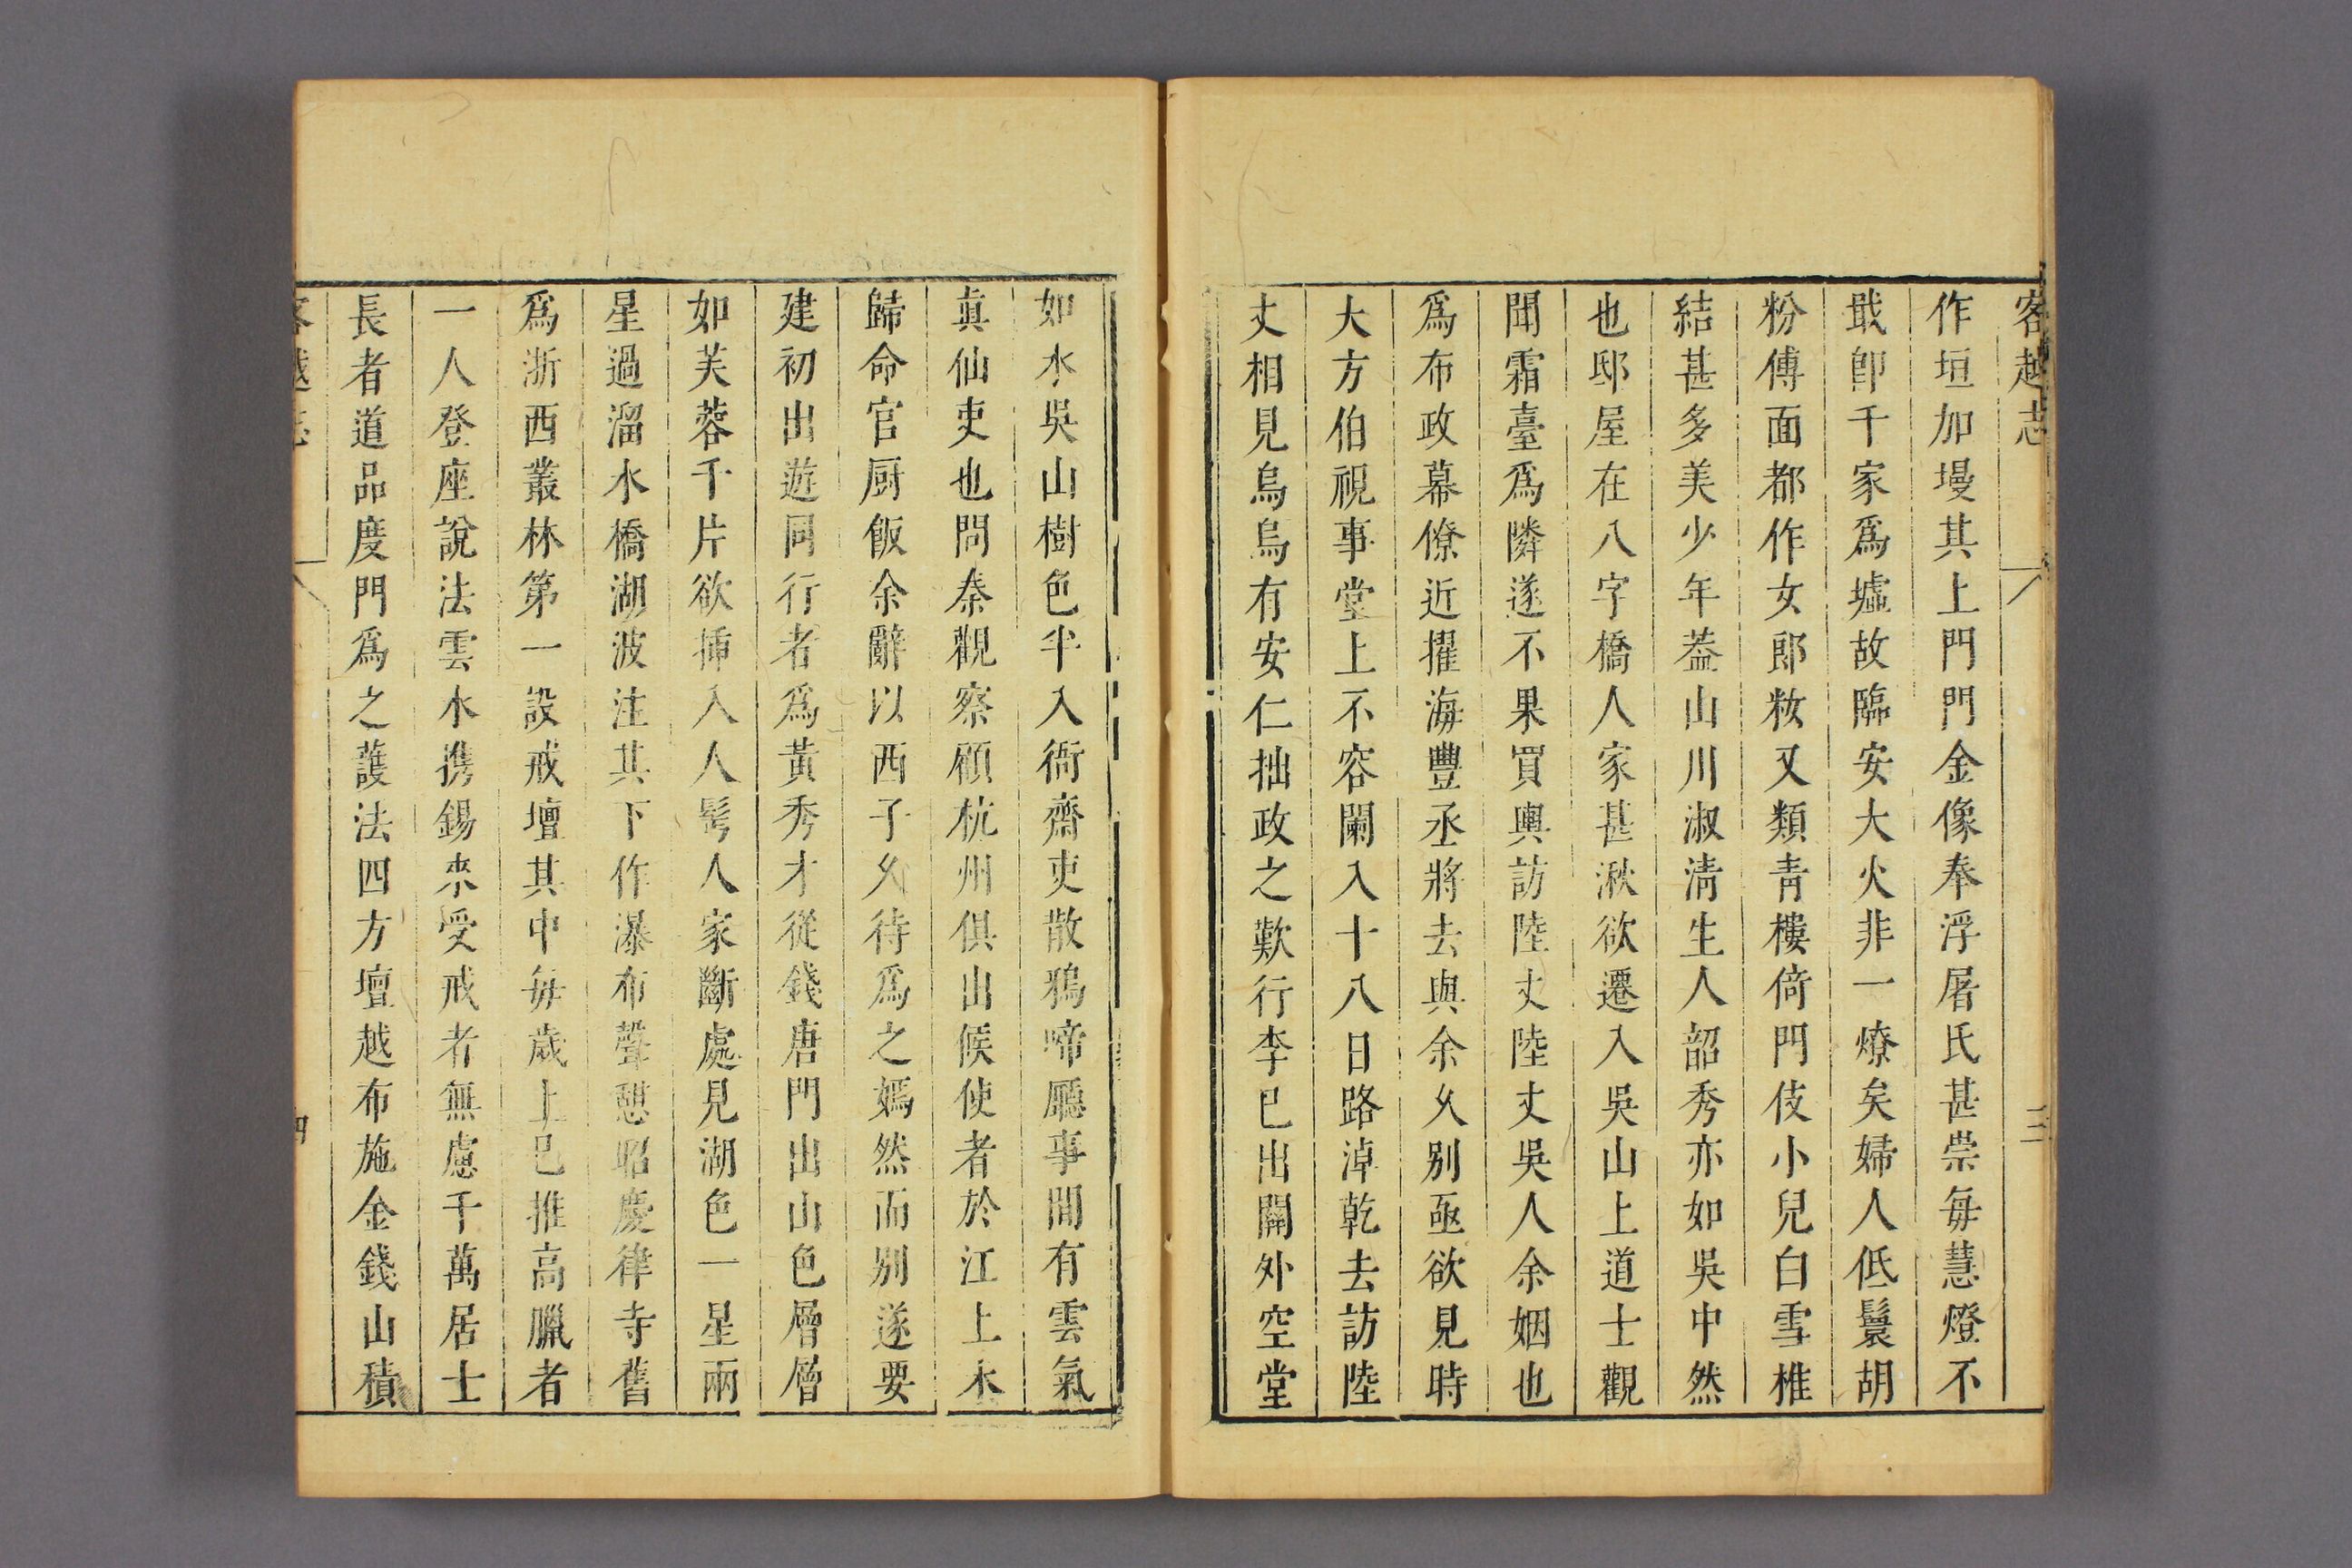 客越志 三
作垣加墁其上門門金像奉浮屠氏甚崇每慧燈不
戢卽千家爲墟故臨安大火非一燎矣婦人低鬟胡
粉傅面都作女郎粧又類靑樓倚門伎小兒白雪椎
結甚多美少年葢山川淑淸生人韶秀亦如吳中然
也邸屋在八字橋人家甚湫欲遷入吳山上道士觀
聞霜臺爲隣遂不果買輿訪陸丈陸丈吳人余姻也
爲布政幕僚近擢海豐丞將去與余久别亟欲見時
大方伯視事堂上不容闌入十八日路淖乾去訪陸
丈相見烏烏有安仁拙政之歎行李已出關外空堂
如水吳山樹色半入衙齋吏散鴉啼廳事間有雲氣
眞仙吏也問秦觀察顧杭州俱出候使者於江上未
歸命官厨飯余辭以西子久待爲之嫣然而别遂要
建初出遊同行者爲黃秀才從錢唐門出山色層層
如芙蓉千片欲揷入人髩人家斷處見湖色一星兩
星過溜水橋湖波注其下作瀑布聲憇昭慶律寺舊
爲浙西叢林第一設戒壇其中每歲上巳推高臘者
一人登座說法雲水携錫來受戒者無慮千萬居士
長者道品度門爲之護法四方壇越布施金錢山積
客越志 四